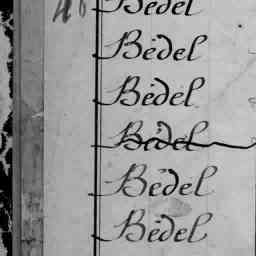 46 Bedel
Bedel
Bedel
Bedel
Bedel
Bedel